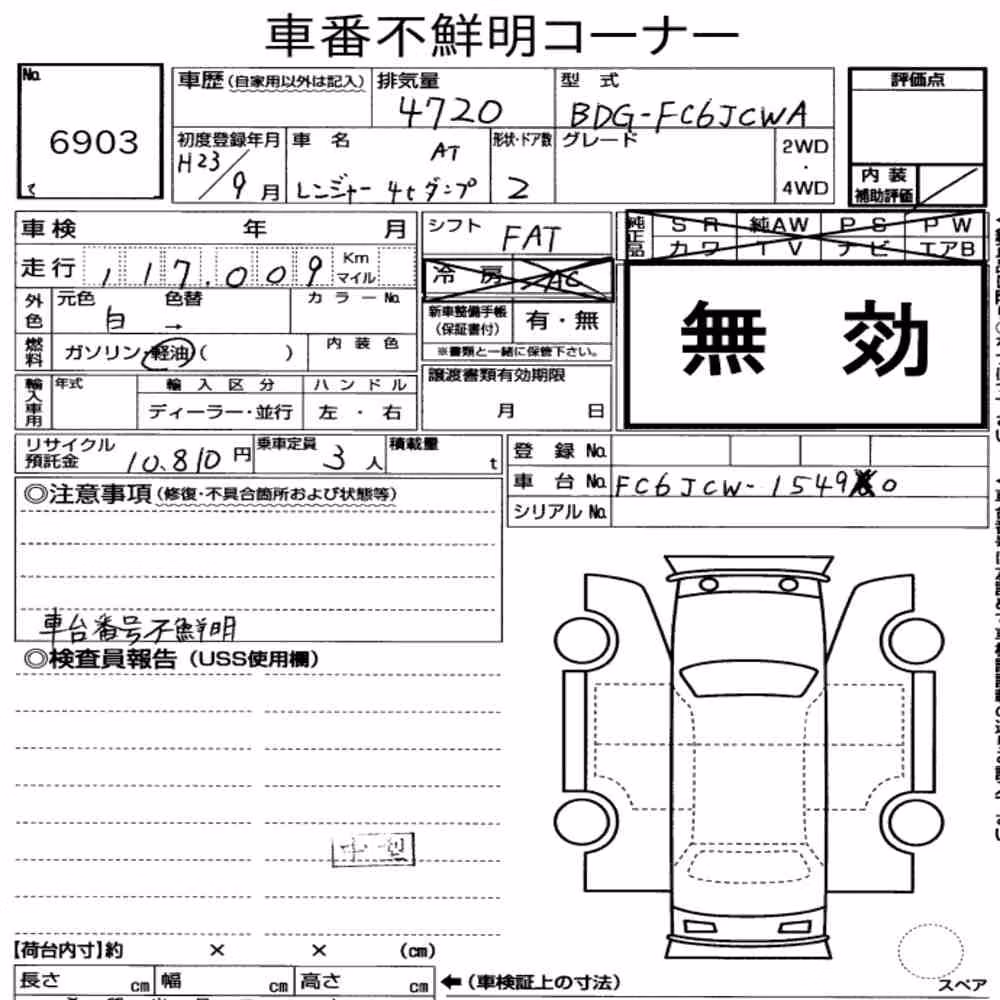 車番不鮮明コーナー
No. 6903
車歴(自家用以外は記入) 排気量 4720 型 式 BDG-FC6JCWA 評価点
初度登録年月 H23/9月 車 名 AT レンジャー 4tダンプ 形状・ドア数 2 グレード 2WD・4WD
内 装 補助評価
車検 年 月 シフト FAT 純正品 SR 純AW PS PW
カワ TV ナビ エアB
走行 117.009 Km マイル 冷 房 AC
外色 元色 白 → 色替 カ ラ ー No.
新車整備手帳 (保証書付) 有・無
※書類と一緒に保管下さい。
無 効
燃料 ガソリン・軽油( ) 内 装 色
輸入車用 年式 輸 入 区 分 ハ ン ド ル 譲渡書類有効期限
ディーラー・並行 左 ・ 右 月 日
リサイクル預託金 10,810円 乗車定員 3人 積載量 t 登 録 No.
車 台 No. FC6JCW-1549 0
シリアル No.
◎注意事項(修復・不具合箇所および状態等)
車台番号不鮮明
◎検査員報告(USS使用欄)
【荷台内寸】約 × × (cm)
長さ cm 幅 cm 高さ cm ←(車検証上の寸法)
スペア